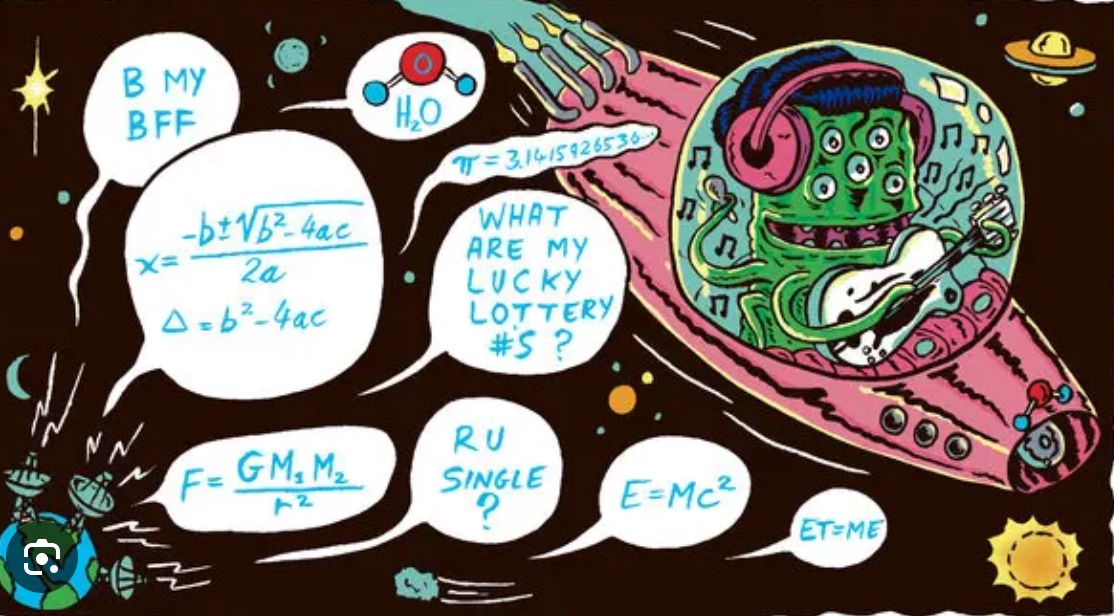 B MY
BFF
O
H₂O
π = 3.1415926536...
x = -b±√b²-4ac
2a
Δ = b²-4ac
WHAT
ARE MY
LUCKY
LOTTERY
#S ?
F = GM₁M₂
r²
R U
SINGLE
?
E=Mc²
ET=ME